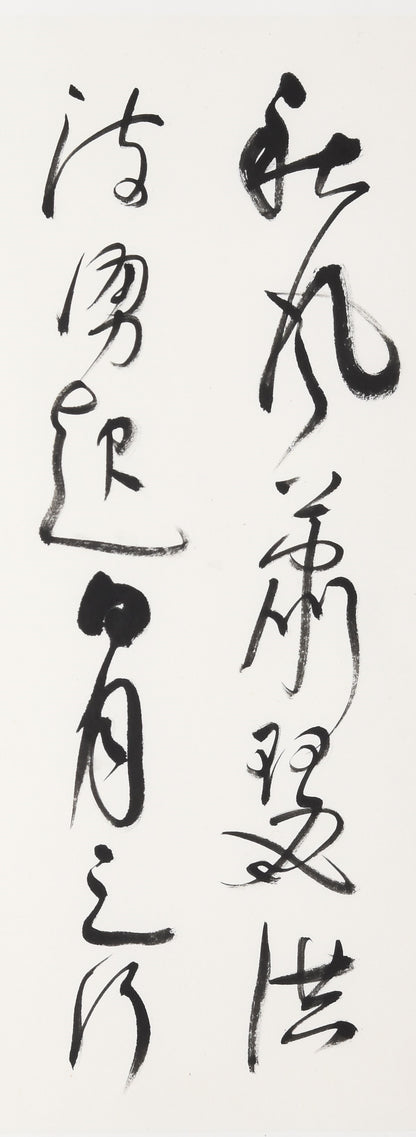 秋風蕭瑟洪
波湧起日月之行